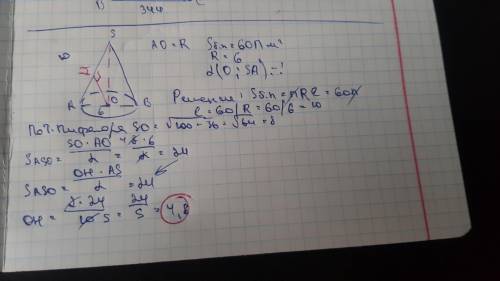 344
S
AO = R Sб.п = 60π м²
R = 6
d(O; SA) - ?
A 6 O B
Решение: Sб.п = πRl = 60π
l = 60/R = 60/6 = 10
По т. Пифагора SO = √100 - 36 = √64 = 8
SASO = SO · AO / 2 = 8 · 6 / 2 = 24
SASO = OH · AS / 2 = 24
OH = 2 · 24 / 10 5 = 24 / 5 = 4,8